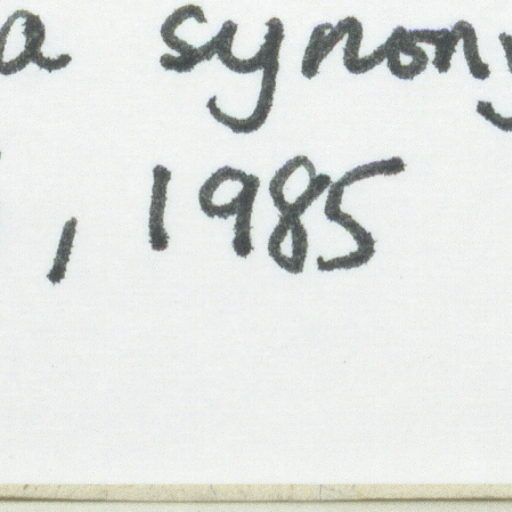 a synony
, 1985